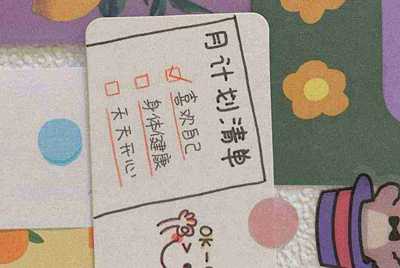 月计划清单
喜欢自己
身体健康
天天开心
OK~